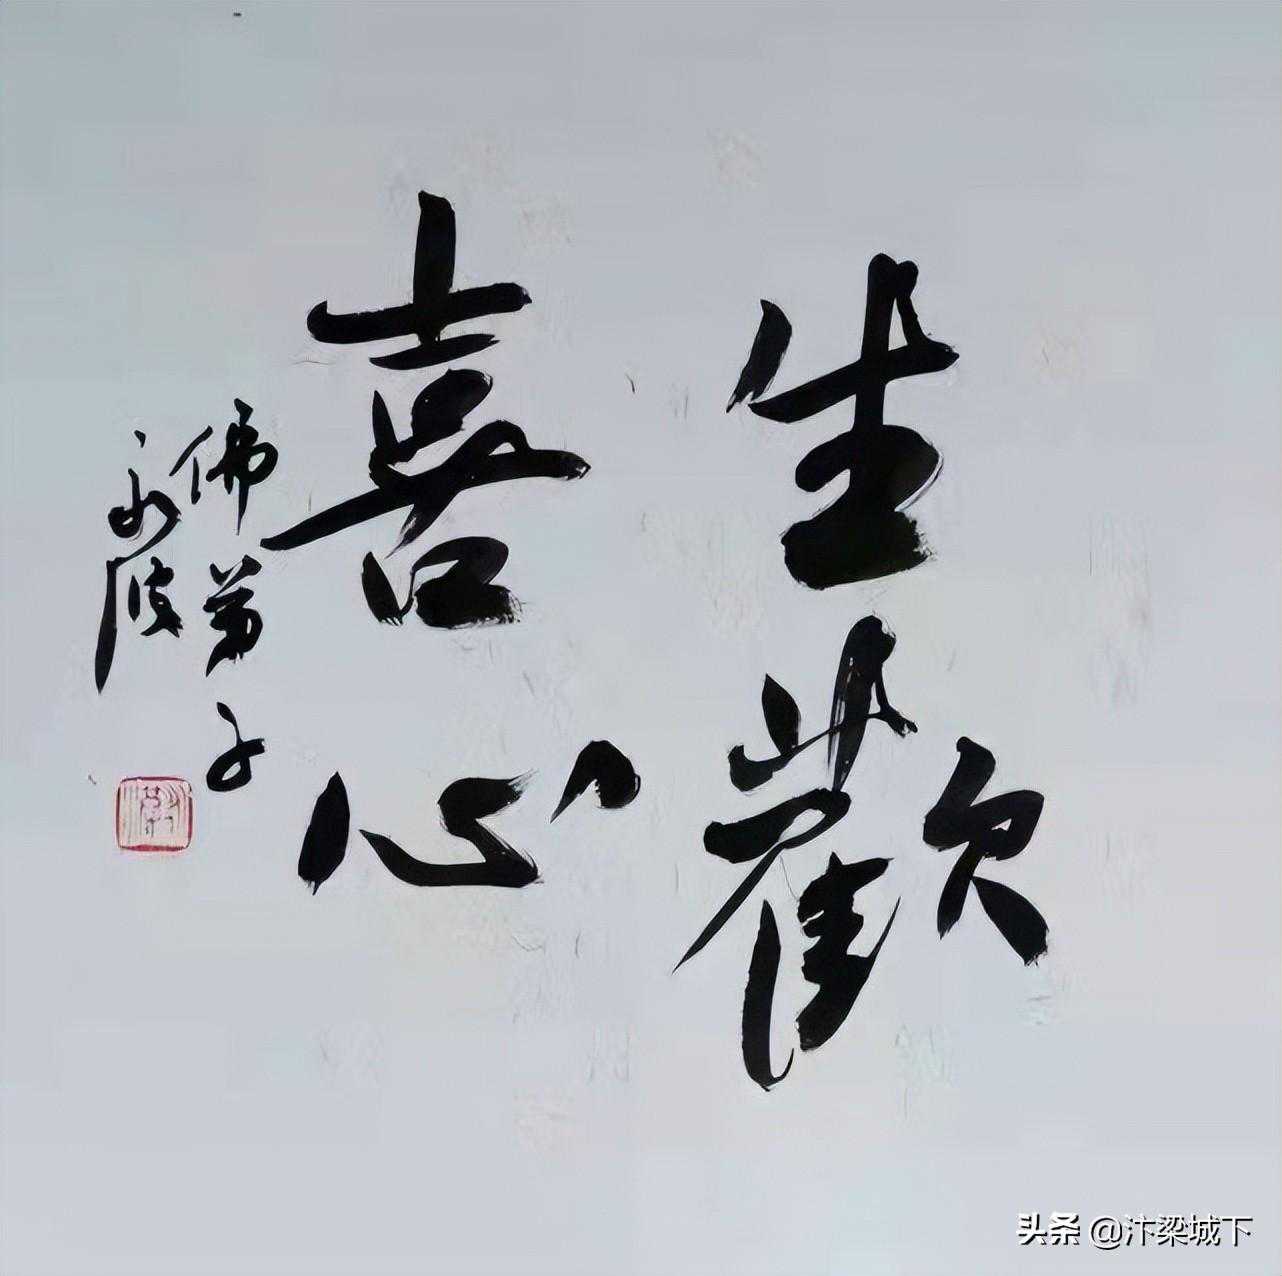 生歡
喜心
佛弟子
永波
头条 @汴梁城下